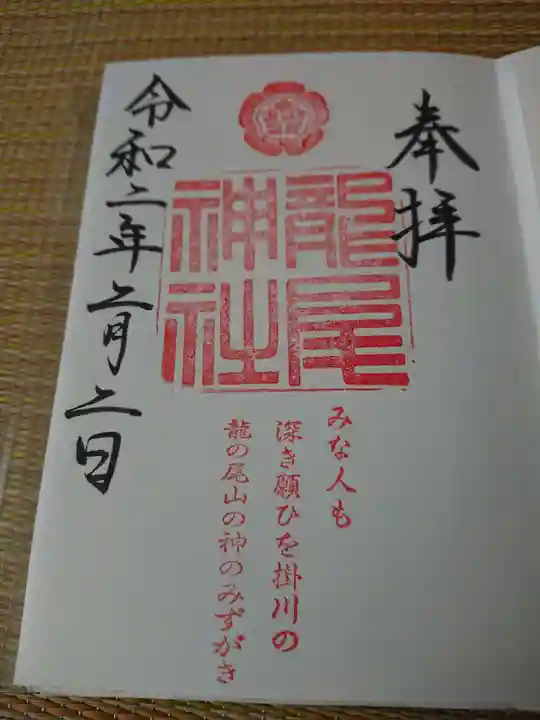 奉拝
龍尾
神社
みな人も
深き願ひを掛川の
龍の尾山の神のみずがき
令和二年二月二日